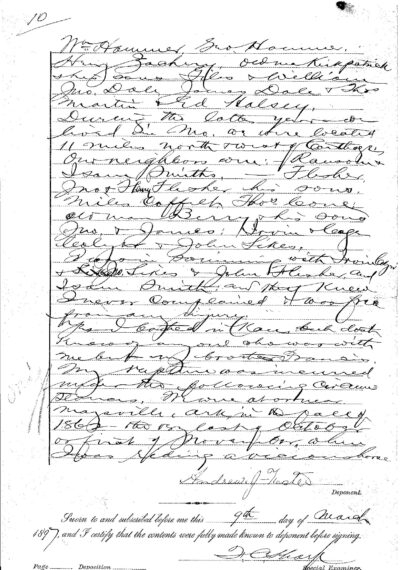 10
Wm Hammer, Geo Hammer,
Henry Zachery, old man Kirkpatrick
& his sons Giles & William
Jno. Dale, James Dale & Thos
Martin & Ed Halsey.
During the latter years we
lived in Mo. we were located
11 miles north & west of Carthage
Our neighbors were: Ransom &
Isam Smith, — Flesher,
Jno & Henry Flesher his sons.
Miles Coffelt, Thos.
old man Berry & his sons
Jno. & James: &
& John Sikes.
with
& Sikes & John Flesher, and
Isam Smith, and they knew
I never complained & was free
from any injury.
Yes I in Kan. but dont
know any one who was with
me but my brother Francis.
My rupture was incurred
under the following circum
stances. We were at or near
Maysville, Ark, in the fall of
186 the last of October
or first of November, when
I was riding a vicious horse
Andrew J. Foster
Deponent.
Sworn to and subscribed before me this 9th day of March
1897, and I certify that the contents were fully made known to deponent before signing.
Page Deposition Special Examiner.